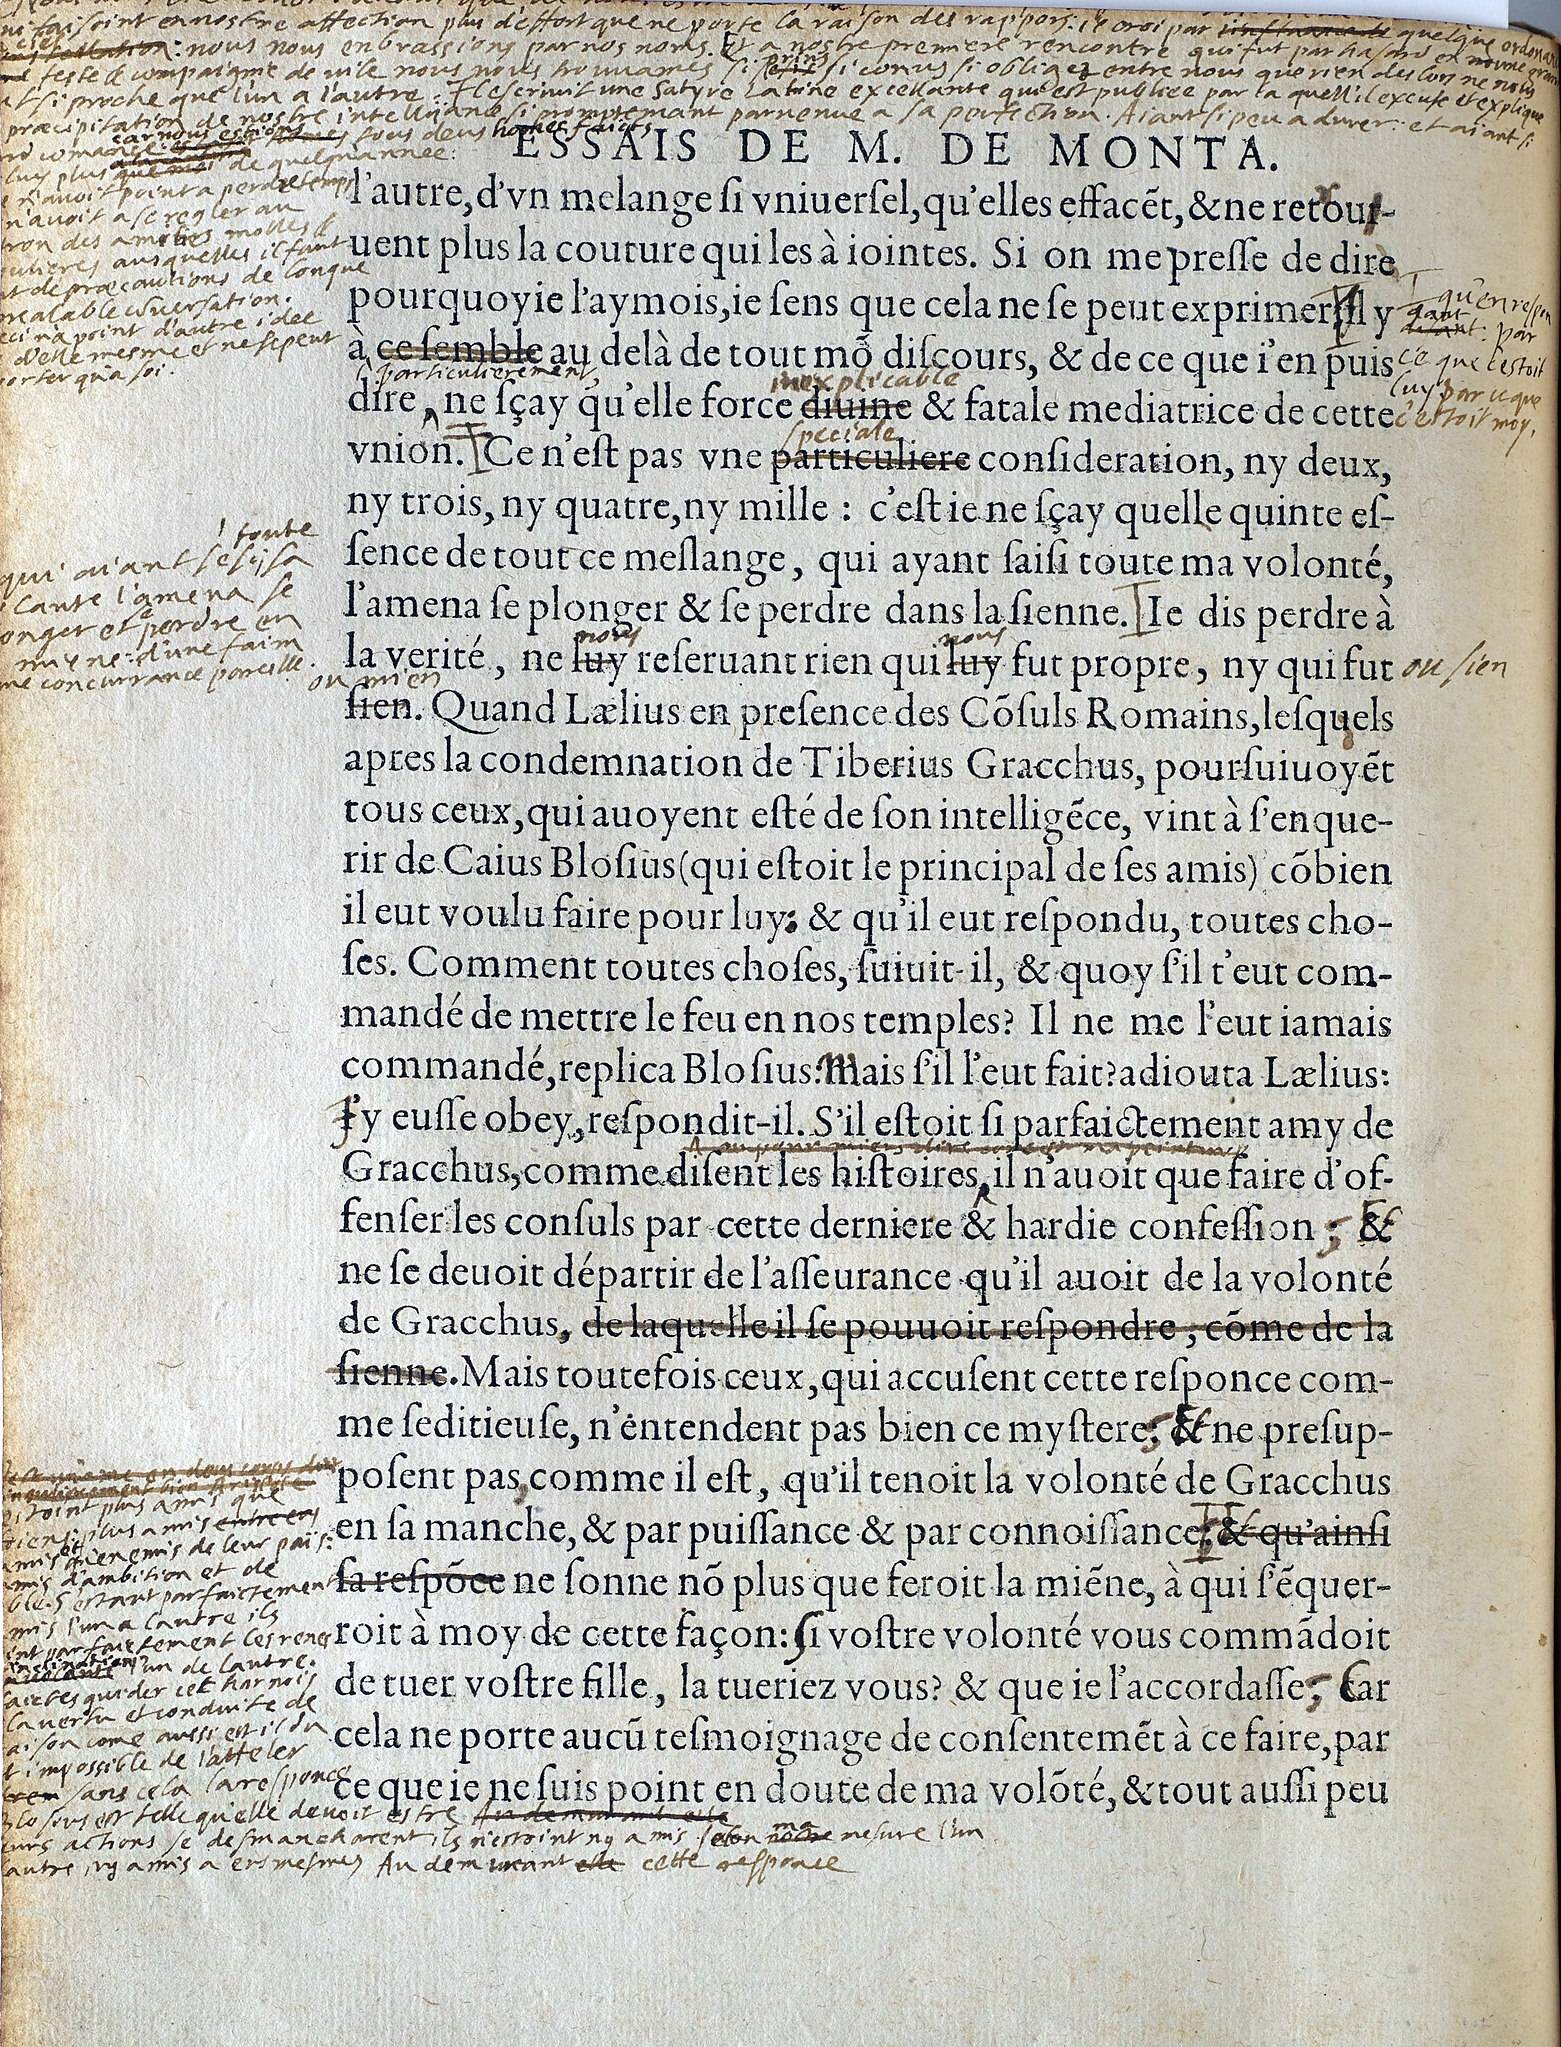 faisoint en nostre affection plus d'effort que ne porte la raison des rappors: ie croi par quelque ordonance
nous nous enbrassions par nos noms. Et a nostre premiere rencontre qui fut par hasard en
feste & compaignie de vile nous nous trouvames si prins si conus si obligez entre nous que rien des lors ne nous
si proche que l'un a l'autre. Il escrivit une Satyre Latine excellante qui est publiee par la quelle il excuse et explique
præcipitation de nostre intelligance si promptemant parvenue a sa perfection. Aiant si peu a durer: et aiant si
car nous estions tous deus homes faicts
luy plus de quelque annee:
n'avoit point a perdre temps
n'avoit a se regler au
des amities molles &
ausquelles il faut
de præcautions de longue
prealable conversation.
n'a point d'autre idee
d'elle mesme et ne se peut
qu'a soi.
ESSAIS DE M. DE MONTA.
l'autre, d'vn melange ſi vniuerſel, qu'elles effacẽt, & ne retour-
uent plus la couture qui les à iointes. Si on me preſſe de dire
pourquoy ie l'aymois, ie ſens que cela ne ſe peut exprimer, Il y
qu'en respon
dant: par
ce que c'estoit
luy par ce que
c'estoit moy.
à ce ſemble au delà de tout mõ diſcours, & de ce que i'en puis
particulierement
inexplicable
dire, ne ſçay qu'elle force diuine & fatale mediatrice de cette
speciale
vnion. Ce n'eſt pas vne particuliere conſideration, ny deux,
ny trois, ny quatre, ny mille : c'eſt ie ne ſçay quelle quinte eſ-
ſence de tout ce meſlange, qui ayant ſaiſi toute ma volonté,
l'amena ſe plonger & ſe perdre dans la ſienne. Ie dis perdre à
toute
qui aiant sesi sa
l'amena se
et perdre en
d'une faim
concurrance pareille.
nous nous
la verité, ne luy reſeruant rien qui luy fut propre, ny qui fut
ou sien
ou mien
ſien. Quand Lælius en preſence des Cõſuls Romains, leſquels
apres la condemnation de Tiberius Gracchus, pourſuiuoyẽt
tous ceux, qui auoyent eſté de ſon intelligẽce, vint à s'enque-
rir de Caius Bloſius (qui eſtoit le principal de ſes amis) cõbien
il eut voulu faire pour luy: & qu'il eut reſpondu, toutes cho-
ſes. Comment toutes choſes, ſuiuit-il, & quoy s'il t'eut com-
mandé de mettre le feu en nos temples? Il ne me l'eut iamais
commandé, replica Bloſius: Mais s'il l'eut fait? adiouta Lælius:
I'y euſſe obey, reſpondit-il. S'il eſtoit ſi parfaictement amy de
Gracchus, comme diſent les hiſtoires, il n'auoit que faire d'of-
fenſer les conſuls par cette derniere & hardie confeſſion ; &
ne ſe deuoit départir de l'aſſeurance qu'il auoit de la volonté
de Gracchus, de laquelle il ſe pouuoit reſpondre, cõme de la
ſienne. Mais toutefois ceux, qui accuſent cette reſponce com-
me ſeditieuſe, n'entendent pas bien ce myſtere: & ne preſup-
poſent pas comme il eſt, qu'il tenoit la volonté de Gracchus
en ſa manche, & par puiſſance & par connoiſſance: & qu'ainſi
ſa reſpõce ne ſonne nõ plus que feroit la miẽne, à qui s'ẽquer-
roit à moy de cette façon: ſi voſtre volonté vous commãdoit
de tuer voſtre fille, la tueriez vous? & que ie l'accordaſſe; Car
cela ne porte aucũ teſmoignage de conſentemẽt à ce faire, par
ce que ie ne ſuis point en doute de ma volõté, & tout auſſi peu
estoint plus amis que
plus amis
qu'enemis de leur païs:
d'ambition et de
S'estant parfaictement
l'un a l'autre ils
parfaictement les renes
l'un de l'autre.
guider cet harnois
la vertu et conduite de
raison come aussi est il du
impossible de l'atteler
sans cela la responce
est telle qu'elle devoit estre
actions se desmancharent ils n'estoint ny amis selon ma mesure l'un
autre, ny amis a eus mesmes Au demurant cette responce